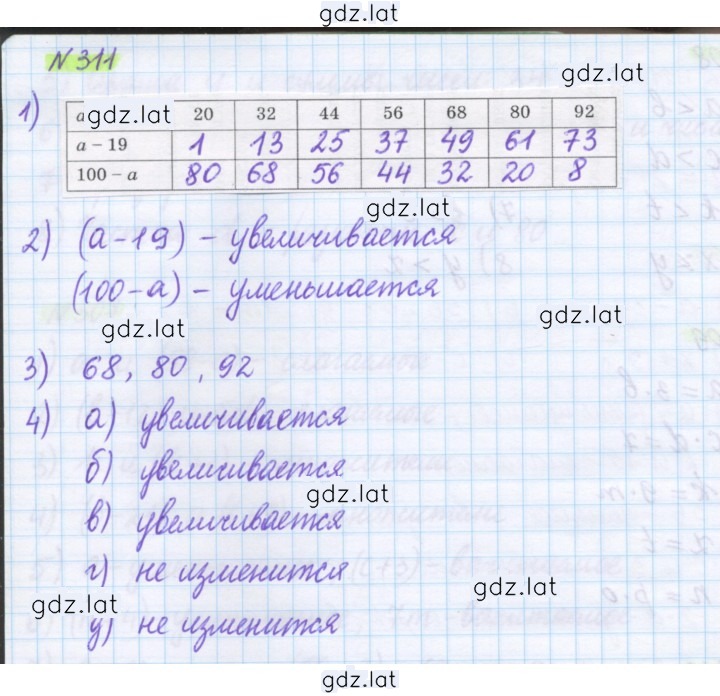 gdz.lat
N 311
gdz.lat
1) a gdz.lat 20 32 44 56 68 80 92
a – 19 1 13 25 37 49 61 73
100 – a 80 68 56 44 32 20 8
gdz.lat
2) (a-19) - увеличивается
(100-a) - уменьшается
gdz.lat gdz.lat
3) 68, 80, 92
4) а) увеличивается
б) увеличивается
gdz.lat
в) увеличивается
г) не изменится
gdz.lat gdz.lat
д) не изменится
gdz.lat